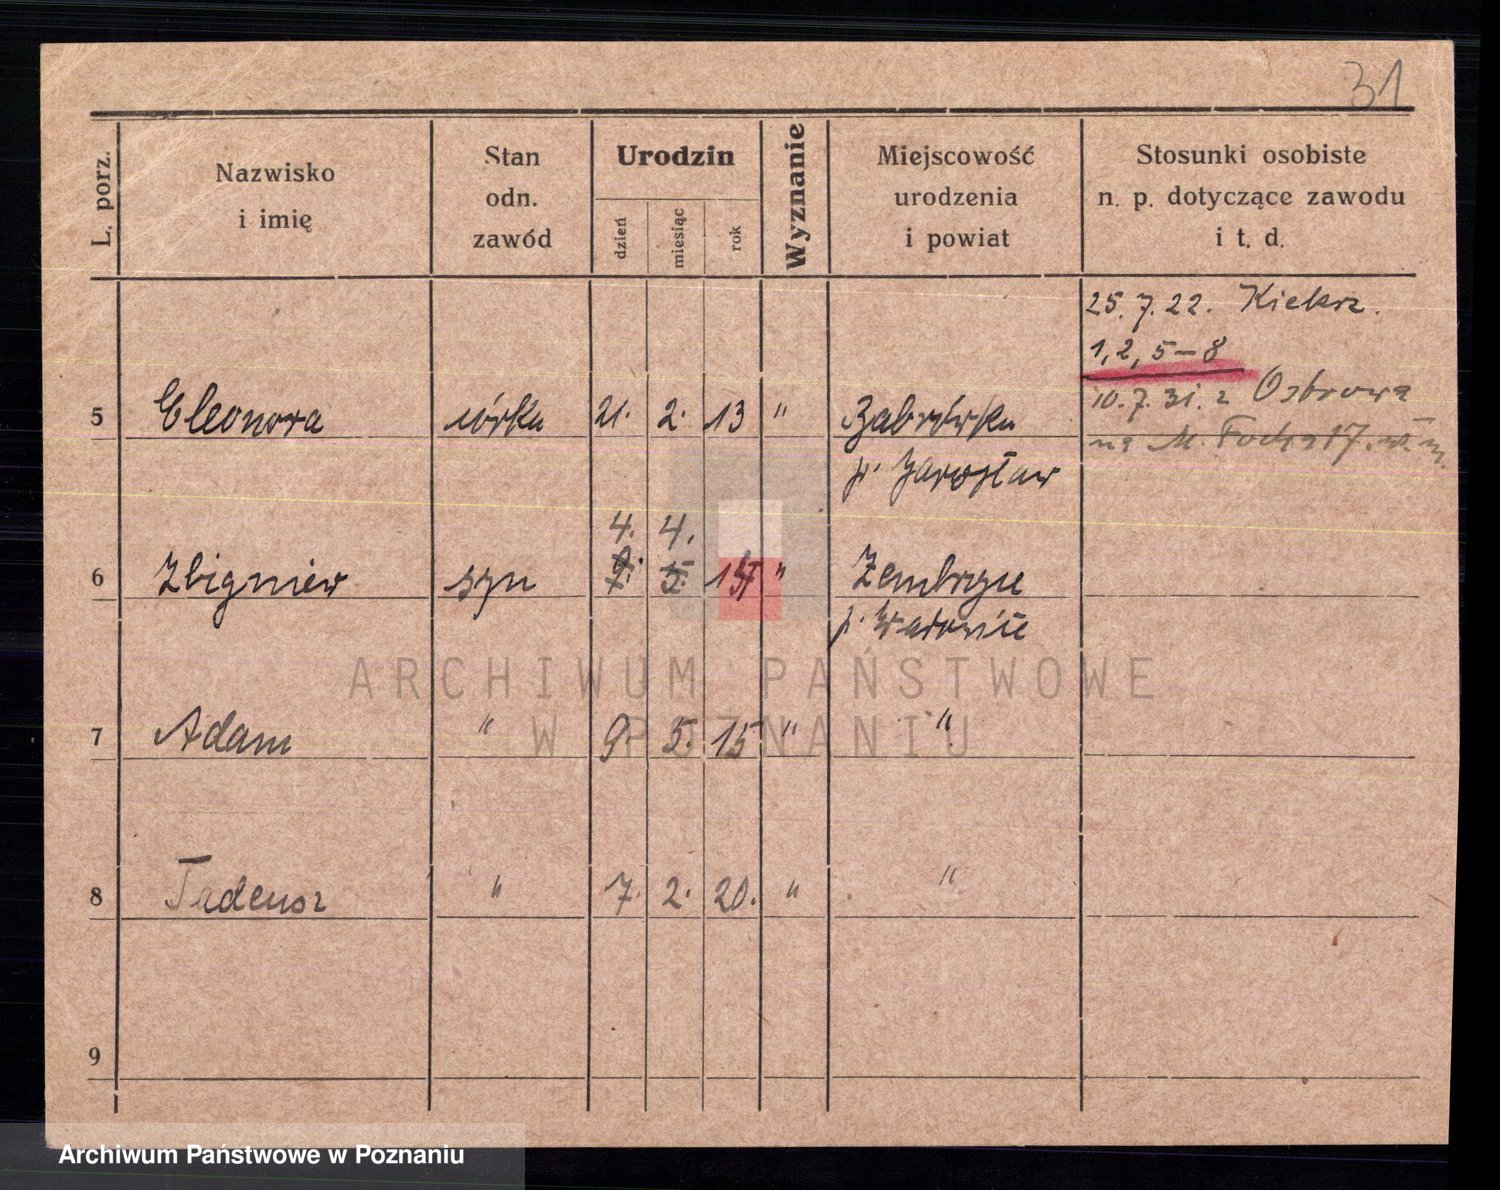 31
L. porz.
Nazwisko
i imię
Stan
odn.
zawód
Urodzin
dzień
miesiąc
rok
Wyznanie
Miejscowość
urodzenia
i powiat
Stosunki osobiste
n. p. dotyczące zawodu
i t. d.
25.7.22. Kiekrz.
1, 2, 5-8
10.7.31. z Ostrowa
na M. Focha 17.
5 Eleonora córka 21. 2. 13 " Zabrówka
p. Jarosław
4. 4.
6 Zbigniew syn 9. 5. 15 " Zembrzyce
p. Wadowice
7 Adam " 9. 5. 15 " "
8 Tadeusz " 7. 2. 20. " "
9
ARCHIWUM PAŃSTWOWE
W POZNANIU
Archiwum Państwowe w Poznaniu